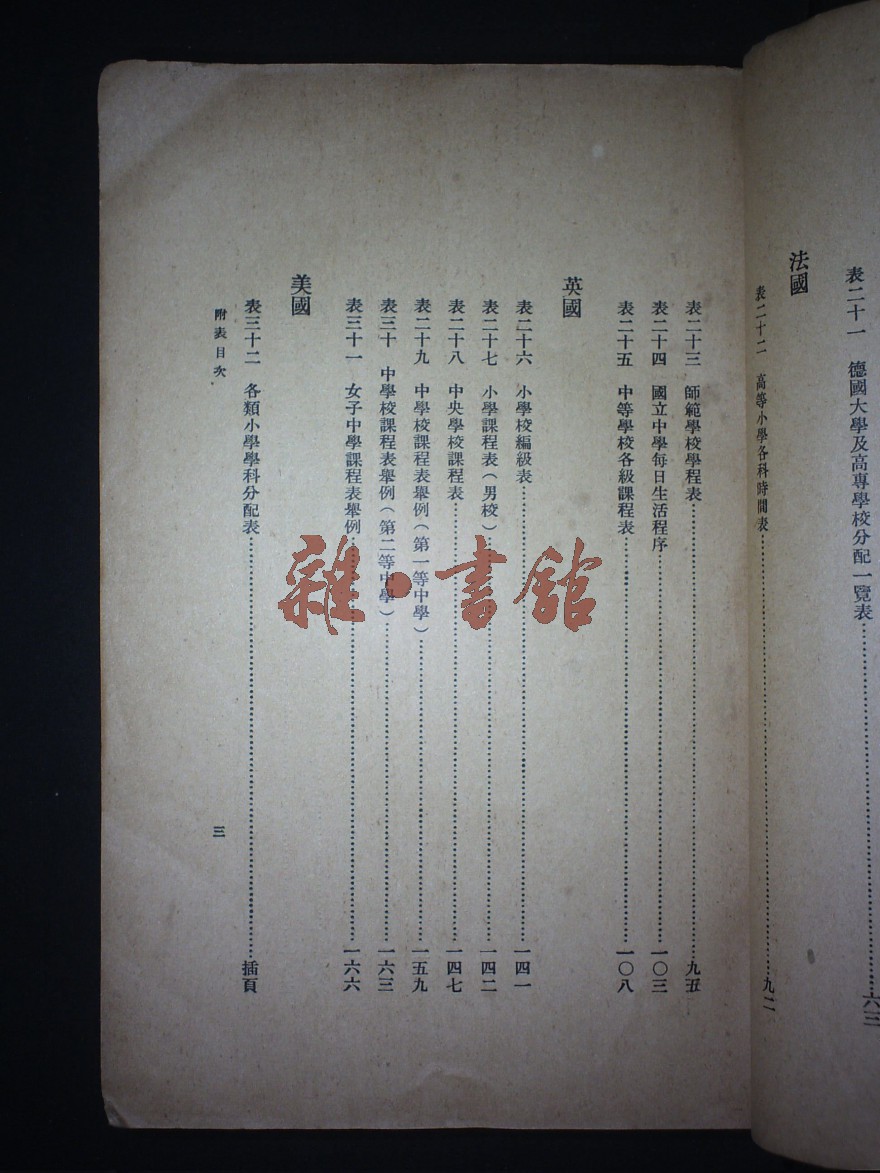 表二十一　德國大學及高專學校分配一覽表……六三
法國
表二十二　高等小學各科時間表……九二
表二十三　師範學校學程表……九五
表二十四　國立中學每日生活程序……一〇三
表二十五　中等學校各級課程表……一〇八
英國
表二十六　小學校編級表……一四一
表二十七　小學課程表（男校）……一四二
表二十八　中央學校課程表……一四七
表二十九　中學校課程表舉例（第一等中學）……一五九
表三十　中學校課程表舉例（第二等中學）……一六三
表三十一　女子中學課程表舉例……一六六
美國
表三十二　各類小學學科分配表……插頁
附表目次
三
雜·書館